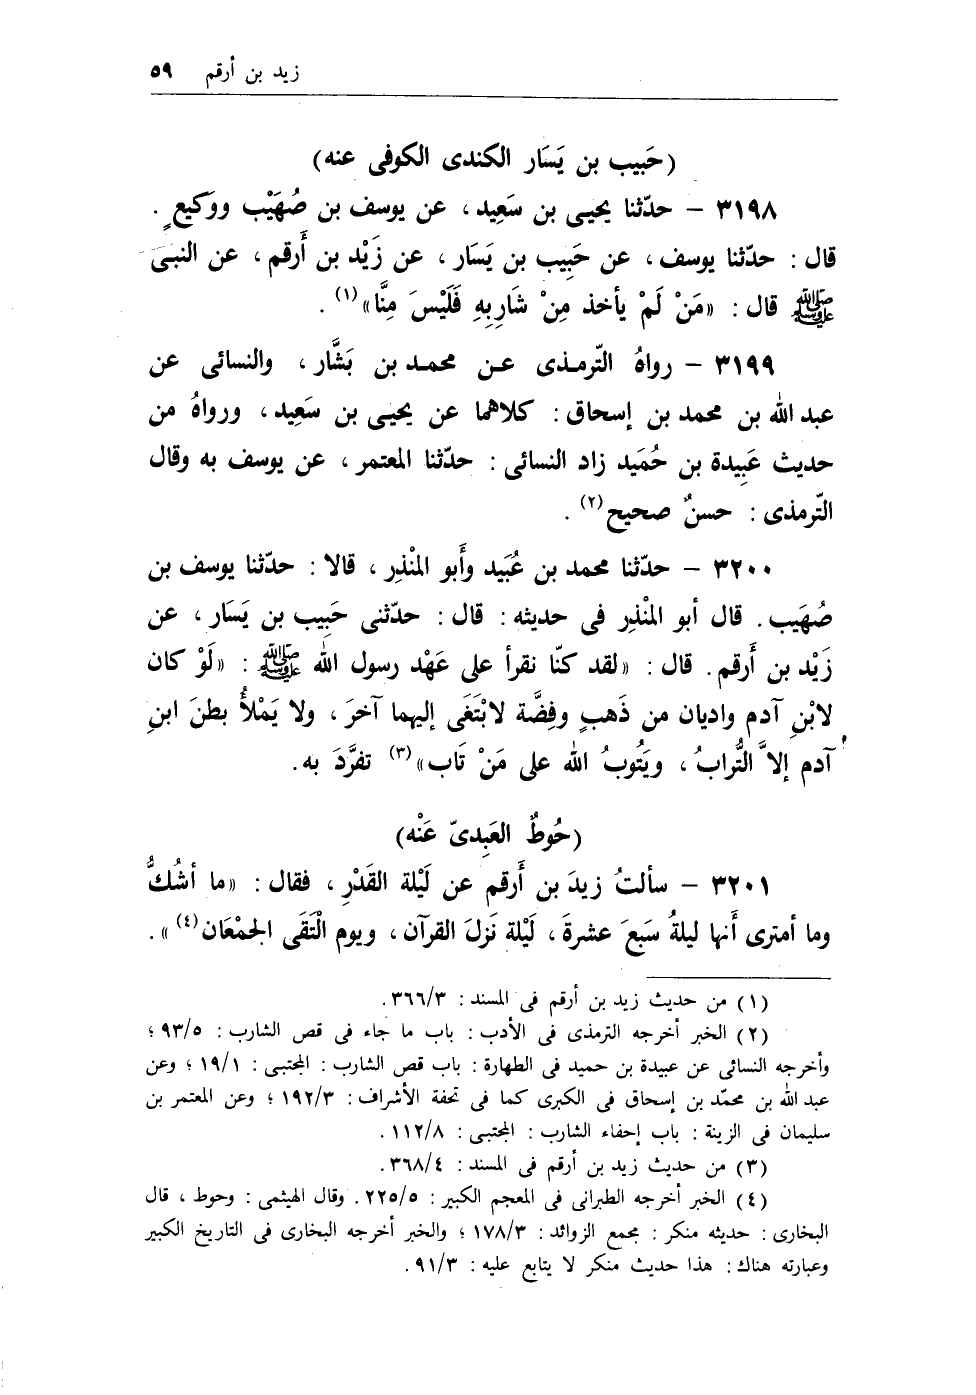 زيد بن أرقم ٥٩
(حَبيب بن يَسَار الكندى الكوفى عنه)
٣١٩٨ – حدّثنا يحيى بن سَعِيد، عن يوسف بن صُهَيْب ووَكيعٍ.
قال: حدّثنا يوسف، عن حَبِيب بن يَسَار، عن زَيْد بن أرقم، عن النبى
ﷺ قال: «مَنْ لَمْ يأخذ مِنْ شَارِبِهِ فَلَيْسَ مِنَّا»(١).
٣١٩٩ – رواهُ التّرمذى عن محمد بن بَشَّار، والنسائى عن
عبد الله بن محمد بن إسحاق: كلاهما عن يحيى بن سَعِيد، ورواهُ من
حديث عَبِيدة بن حُمَيد زاد النسائى: حدّثنا المعتمر، عن يوسف به وقال
التّرمذى: حسنٌ صحيح(٢).
٣٢٠٠ – حدّثنا محمد بن عُبَيد وأَبو المنْذِر، قالا: حدّثنا يوسف بن
صُهَيب. قال أبو المنْذِر فى حديثه: قال: حدّثنى حَبِيب بن يَسَار، عن
زَيْد بن أَرقم. قال: «لقد كنّا نقرأ على عَهْد رسول الله ﷺ: «لَوْ كان
لابْنِ آدم واديان من ذَهبٍ وفِضَّة لابْتَغَى إليهما آخرَ، ولا يَمْلأُ بطنَ ابنِ
آدم إلاَّ التُّرابُ، ويَتُوبُ الله على مَنْ تَاب»(٣) تفرَّدَ به.
(حُوطٌ العَبِدىّ عَنْه)
٣٢٠١ – سألتُ زيدَ بن أَرقم عن لَيْلة القَدْرِ، فقال: «ما أشُكُّ
وما أمترى أَنها ليلةُ سَبعَ عشرةَ، لَيْلة نَزلَ القرآن، ويوم الْتَقَى الجمْعَان(٤)».
(١) من حديث زيد بن أرقم فى المسند: ٣٦٦/٣.
(٢) الخبر أخرجه الترمذى فى الأدب: باب ما جاء فى قص الشارب: ٩٣/٥؛
وأخرجه النسائى عن عبيدة بن حميد فى الطهارة: باب قص الشارب: المجتبى: ١٩/١؛ وعن
عبد الله بن محمّد بن إسحاق فى الكبرى كما فى تحفة الأشراف: ١٩٢/٣؛ وعن المعتمر بن
سليمان فى الزينة: باب إحفاء الشارب: المجتبى: ١١٢/٨.
(٣) من حديث زيد بن أرقم فى المسند: ٣٦٨/٤.
(٤) الخبر أخرجه الطبرانى فى المعجم الكبير: ٢٢٥/٥. وقال الهيثمى: وحوط، قال
البخارى: حديثه منكر: مجمع الزوائد: ١٧٨/٣؛ والخبر أخرجه البخارى فى التاريخ الكبير
وعبارته هناك: هذا حديث منكر لا يتابع عليه: ٩١/٣.